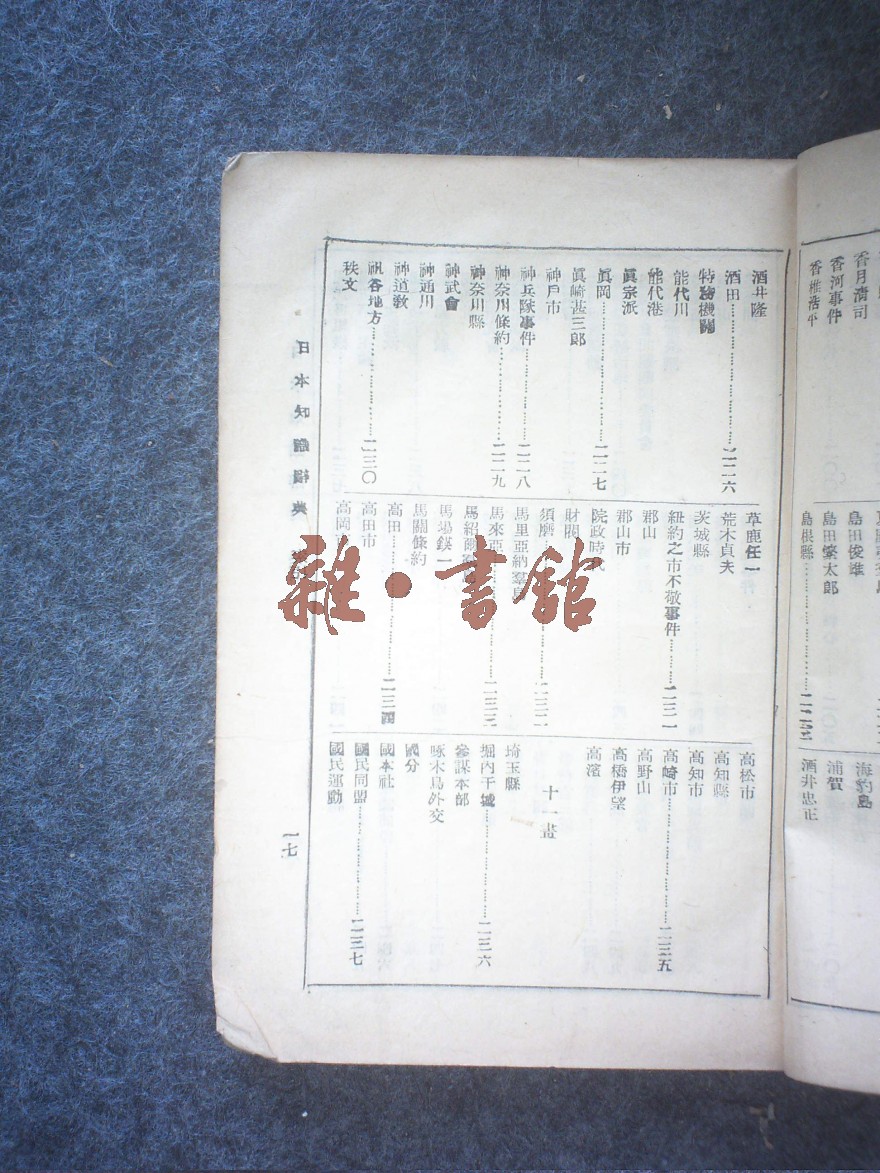 香月清司
香河事件
香椎浩平
島田俊雄
島田繁太郎
島根縣
海豹島
浦賀
酒井忠正
酒井隆
酒田……二二六
特務機關
能代川
能代港
眞宗派
眞岡……二二七
眞崎甚三郎
神戶市
神兵隊事件……二二八
神奈川條約……二二九
神奈川縣
神武會
神通川
神道敎
祇谷地方……二三〇
秩文
草鹿任一
荒木貞夫
茨城縣
紐約之市不敬事件……二三一
郡山
郡山市
院政時代
財閥
須磨……二三二
馬里亞納羣島
馬來亞……二三三
馬場鍈一
馬關條約
高田……二三四
高田市
高岡
高松市
高知縣
高知市
高崎市……二三五
高野山
高橋伊望
高濱
十一畫
埼玉縣
堀內干城……二三六
參謀本部
啄木鳥外交
國分
國本社
國民同盟……二三七
國民運動
日本
典
一七
雜·書館